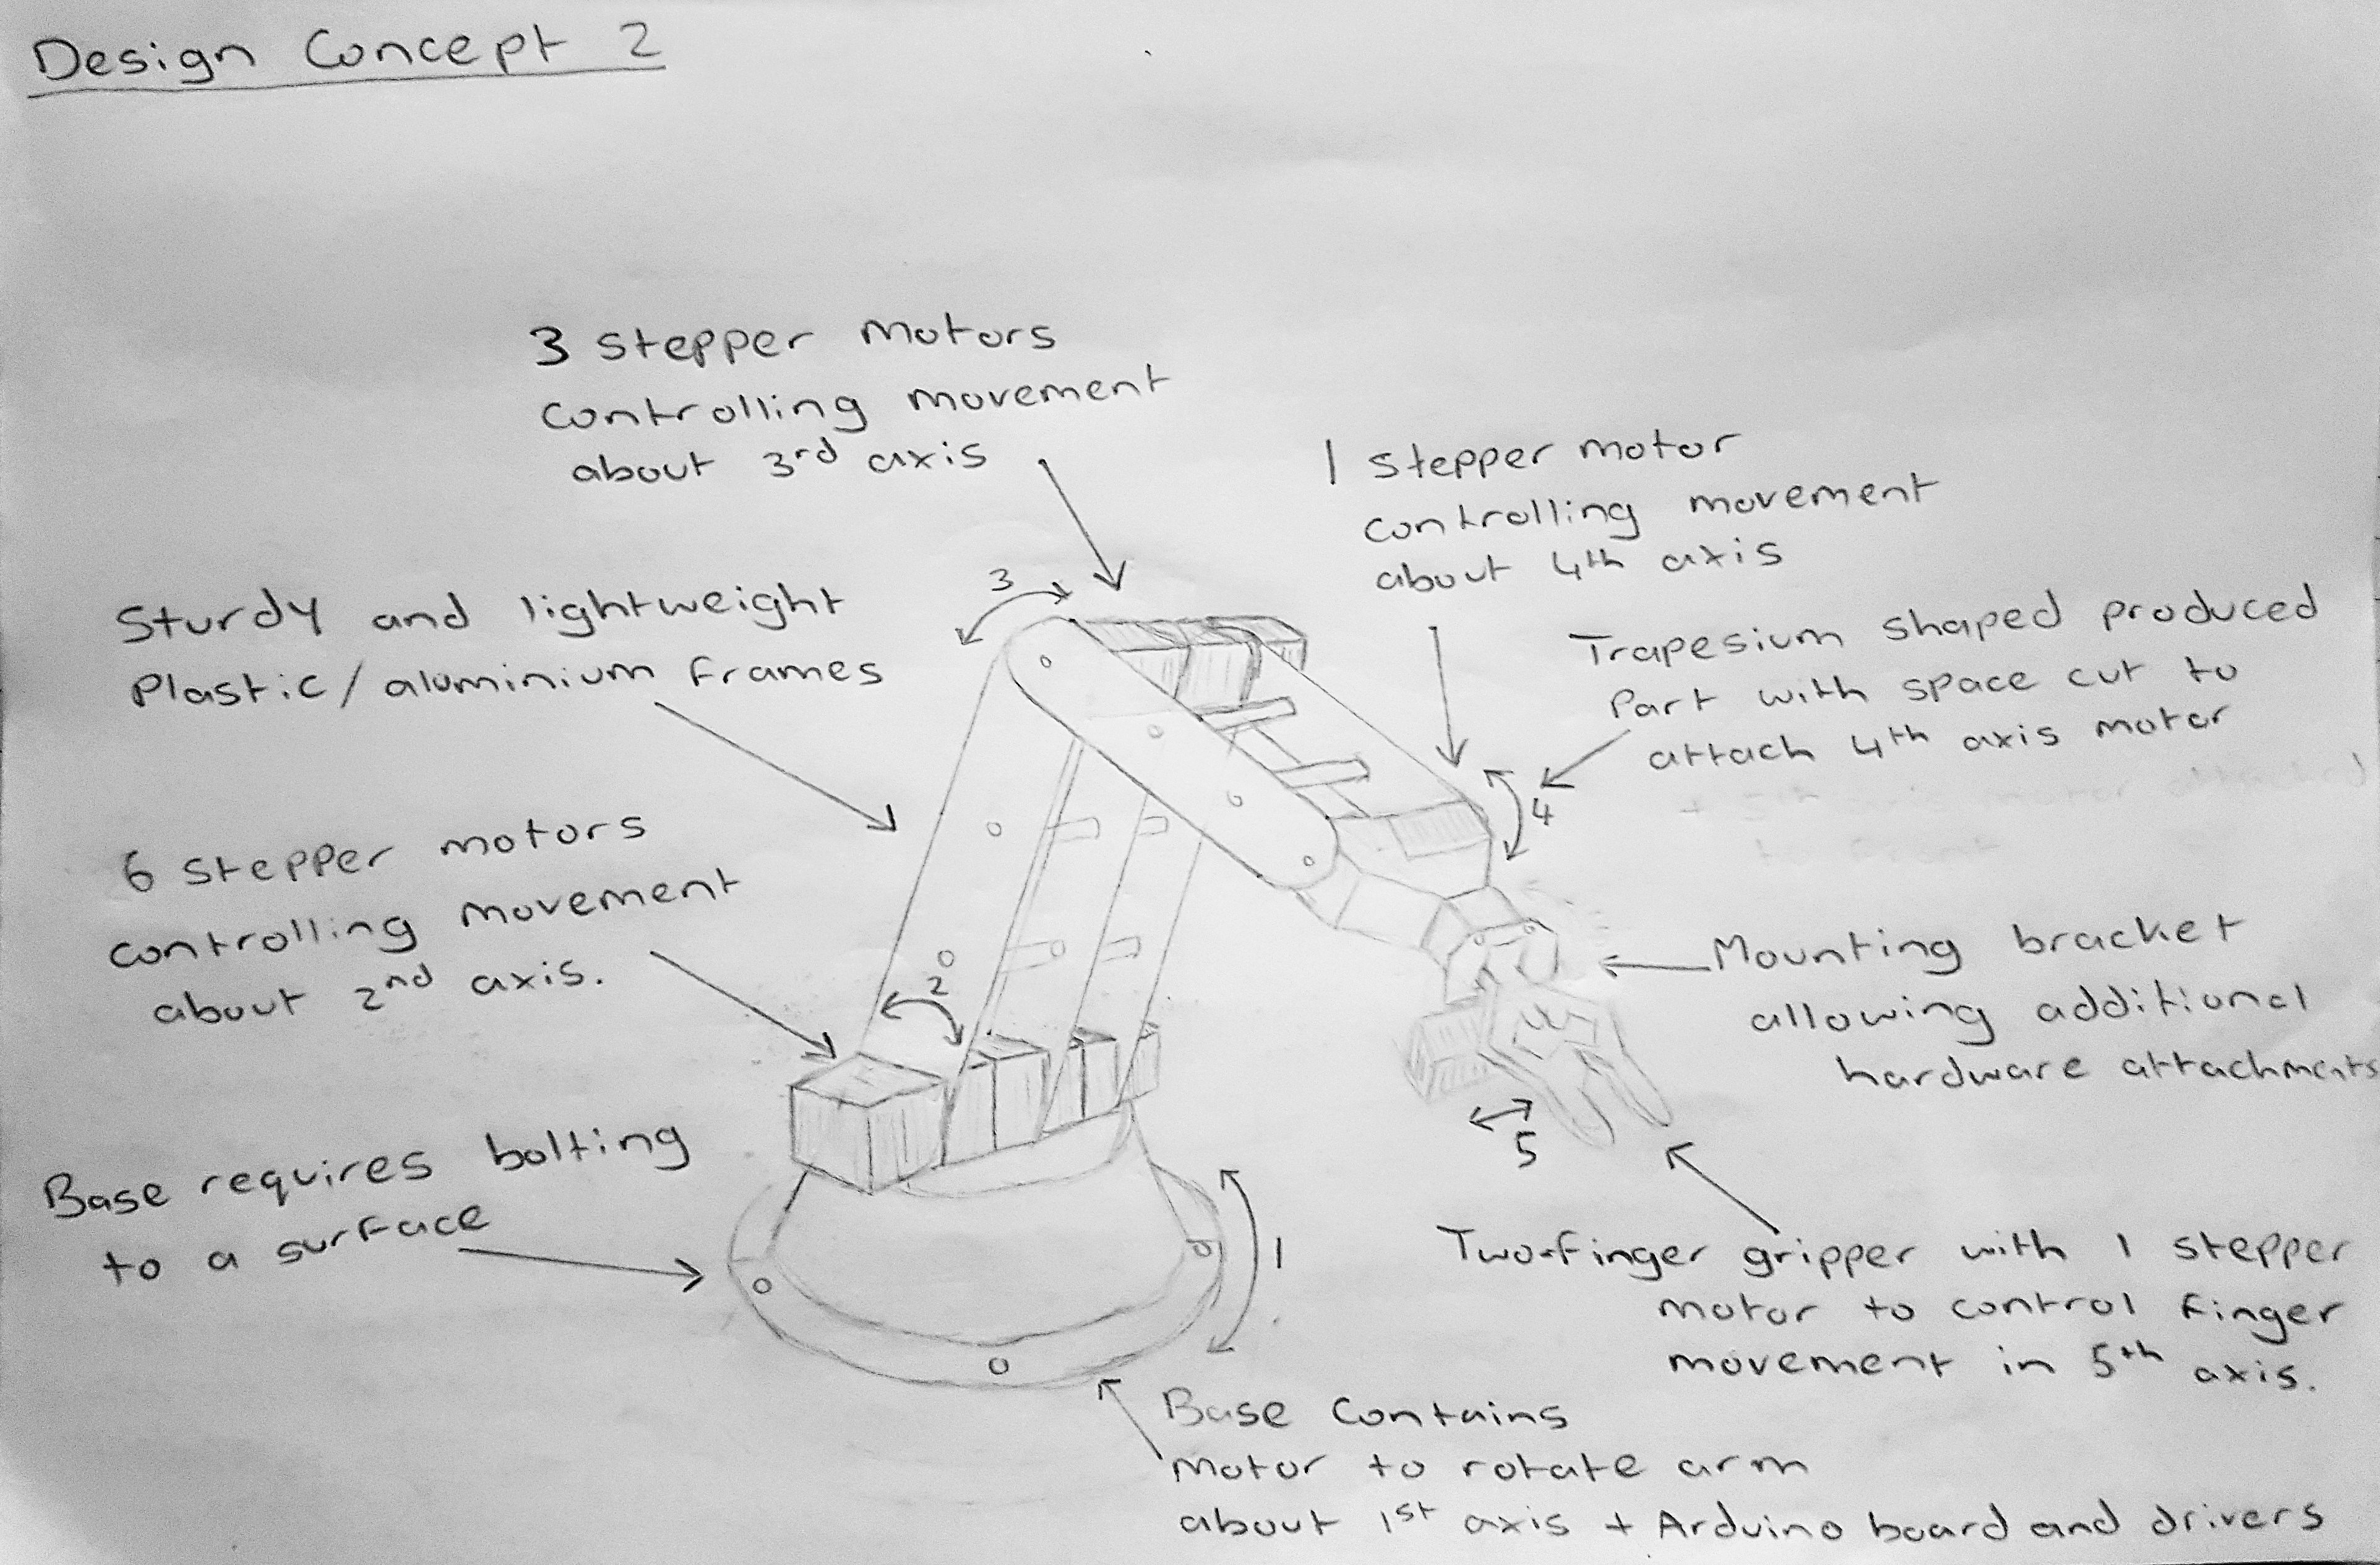 Design Concept 2
3 stepper motors
controlling movement
about 3rd axis
1 stepper motor
controlling movement
about 4th axis
Sturdy and lightweight
Plastic/aluminium frames
Trapesium shaped produced
Part with space cut to
attach 4th axis motor
6 stepper motors
controlling movement
about 2nd axis.
Mounting bracket
allowing additional
hardware attachments
Base requires bolting
to a surface
Two-finger gripper with 1 stepper
motor to control finger
movement in 5th axis.
Base Contains
motor to rotate arm
about 1st axis + Arduino board and drivers
3
4
2
5
1